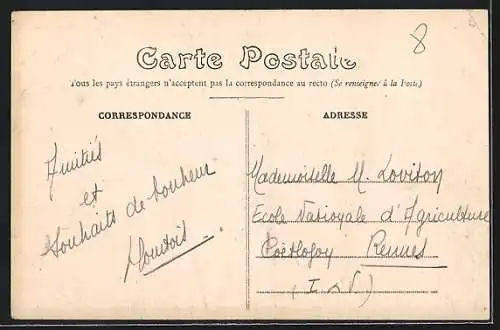 8
Carte Postale
Tous les pays étrangers n'acceptent pas la correspondance au recto (Se renseigner à la Poste)
CORRESPONDANCE
ADRESSE
Amitiés
et
Souhaits de bonheur
Mademoiselle M. Loviton
Ecole Nationale d'Agriculture
Coëtlogon Rennes
(I. & V.)